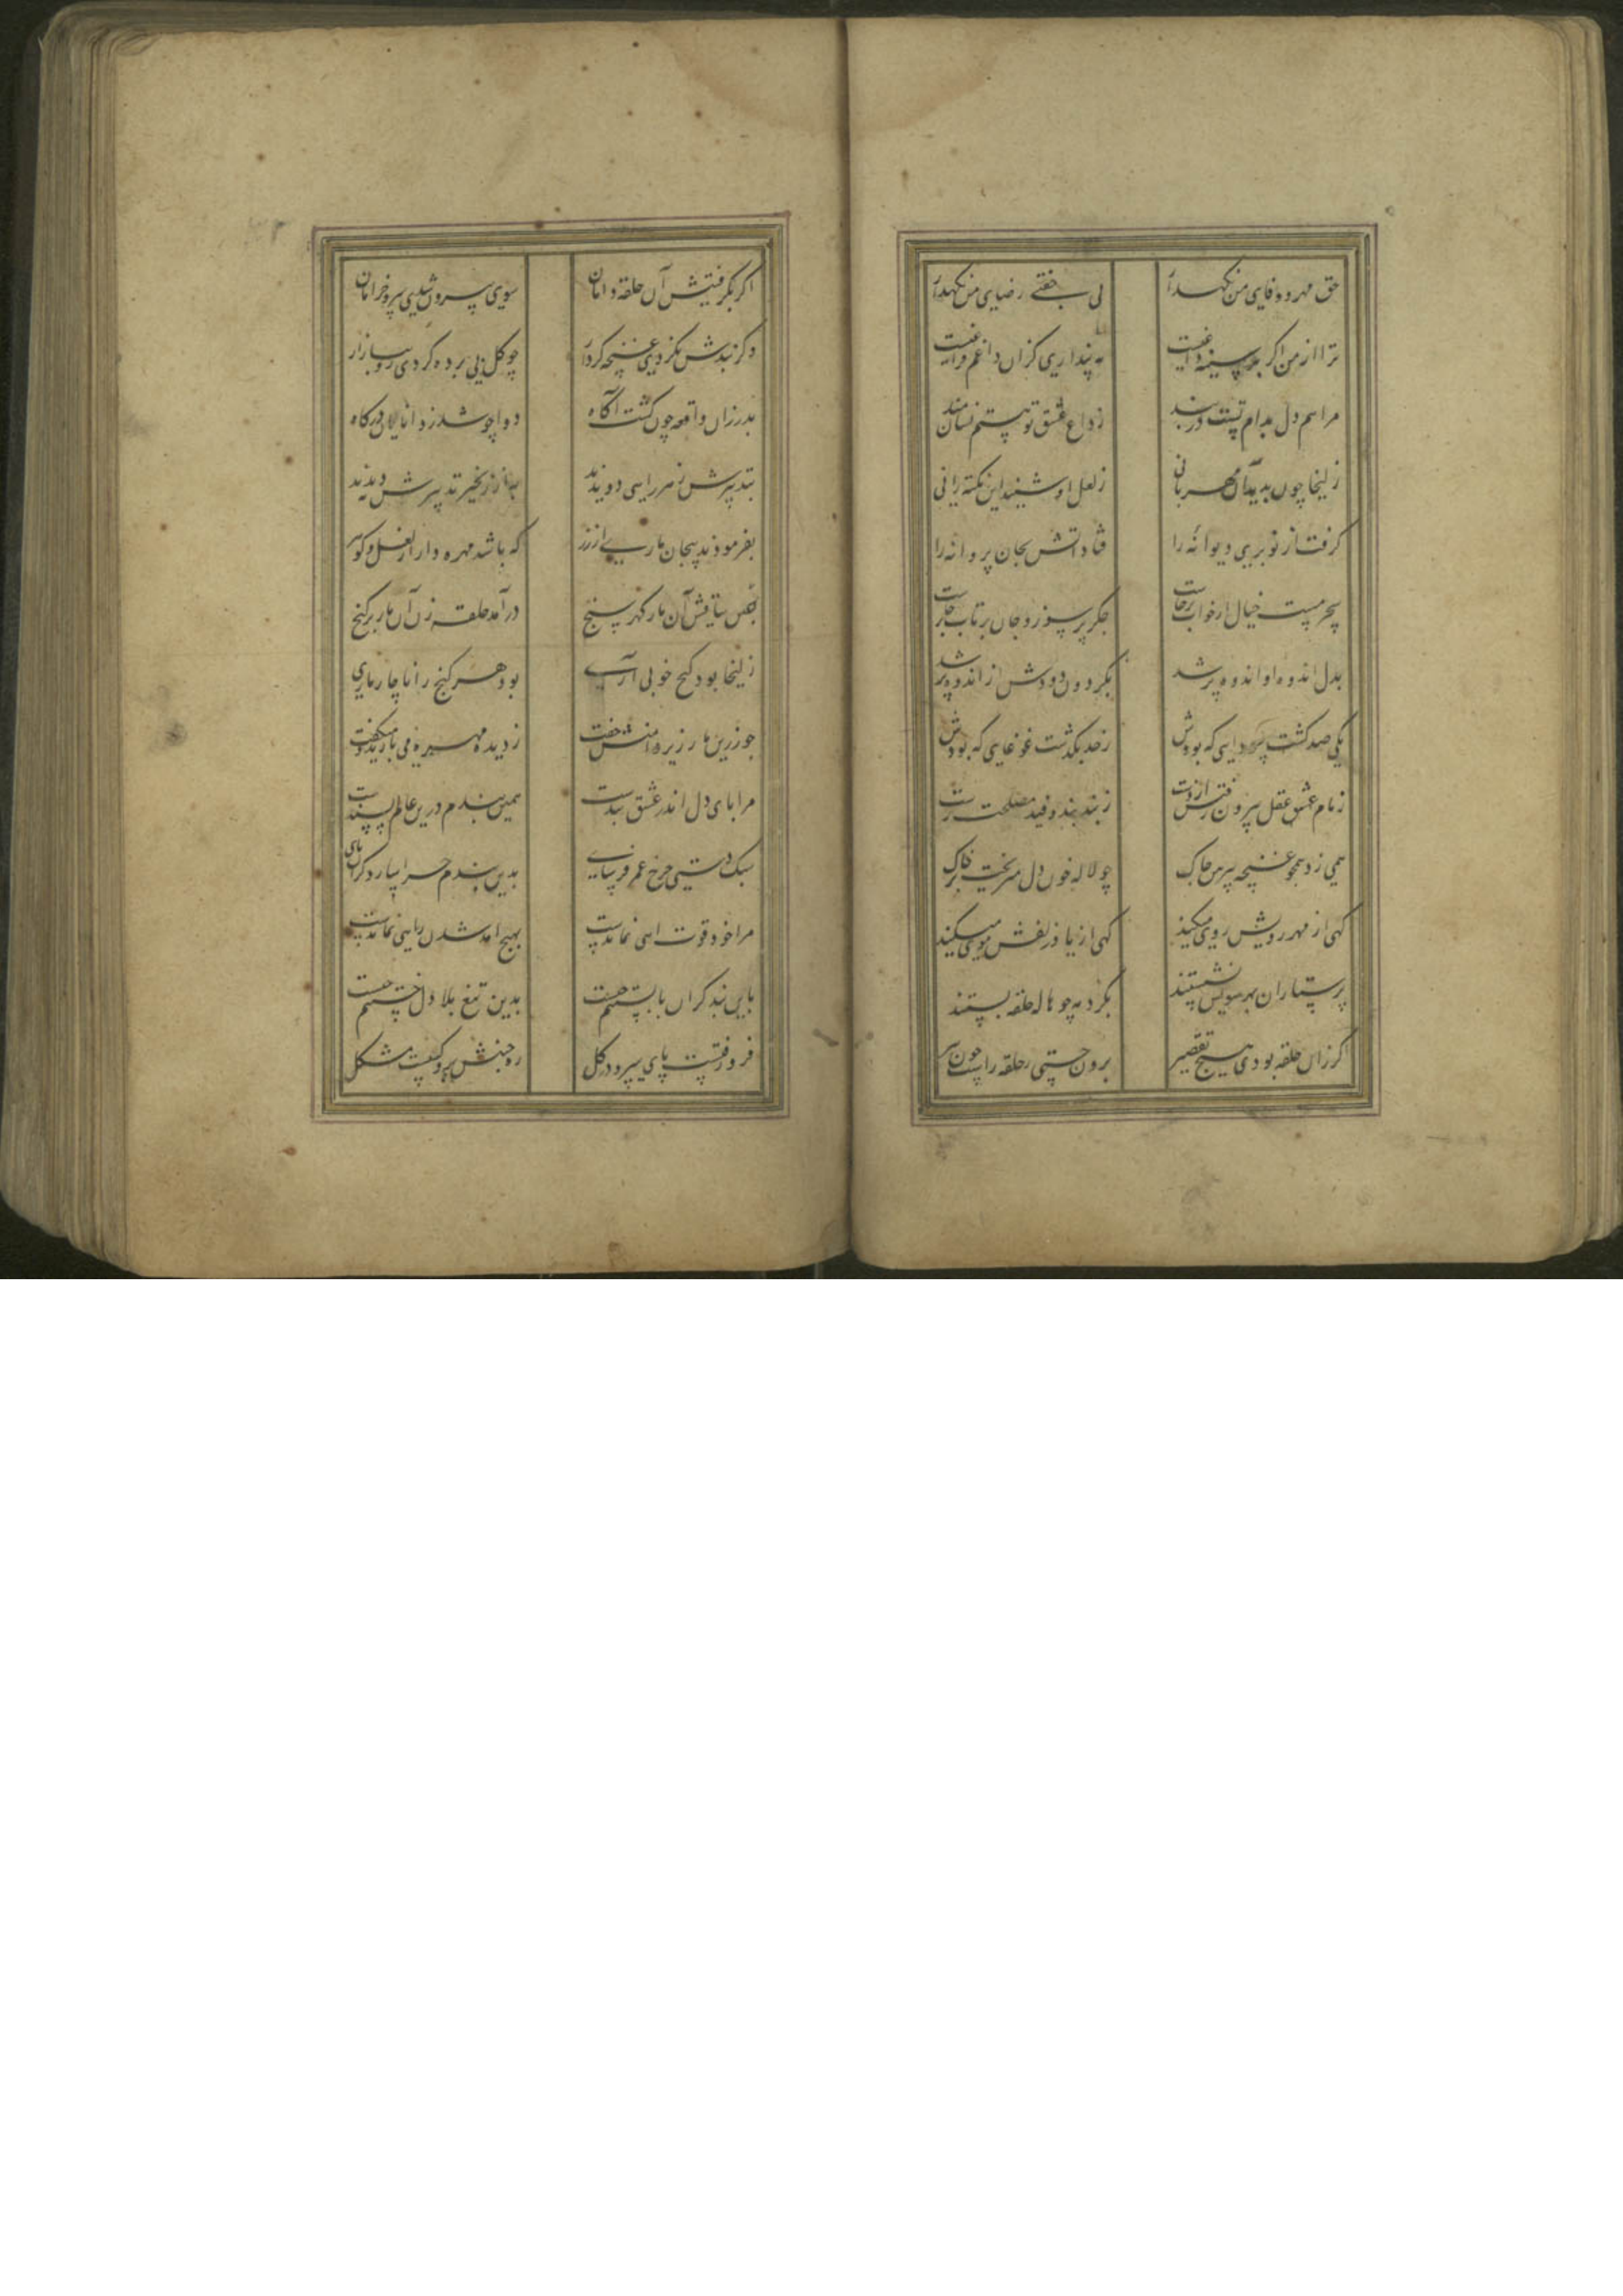 حق مهر و وفای من نگهدار
لی بی جفتی رضای من نگهدار
ترا از من اگر بر سینه داغیست
نه پنداری کزان داغم فراغیست
مرا هم دل بدام تست در بند
ز داغ عشق تو هستم نشان مند
زلیخا چون بدید آن مهربانی
ز لعل او شنید این نکته رانی
گرفت از نو پری دیوانه را
فتاد آتش بجان پروانه را
سحر مست خیال از خواب برخاست
جگر پر سوز و جان پر تاب برخاست
بدل اندوه او اندوه پر شد
بگردون دودش از اندوه بر شد
یکی صد گشت سودایی که بودش
ز حد بگذشت غوغایی که بودش
زمام عشق عقل بیرون رفتش از دست
ز بند بند و قید مصلحت رست
همی زد همچو غنچه پیرهن چاک
چو لاله خون دل میریخت بر خاک
گهی از مهر رویش روی میکند
گهی از یاد زلفش موی میکند
پرستاران بهر سویش نشستند
بگرد مه چو هاله حلقه بستند
گر زان حلقه بودی هیچ تقصیر
برون جستی ز حلقه راست چون تیر
اگر نگرفتیش آن حلقه دامان
سوی بیرون شدی سرو خرامان
وگر بندش نکردی غنچه کردار
چو گل بی پرده کردی رو ببازار
پدر زان واقعه چون گشت آگاه
دواجو شد ز دانایان درگاه
بتدبیرش ز هر راهی دویدند
به از زنجیر تدبیرش ندیدند
بفرمودند پیچان ماری از زر
که باشد مهره دار از لعل و گوهر
بسیمین ساقش آن مار گهر سنج
درآمد حلقه زن آن مار بر گنج
زلیخا بود گنج خوبی آری
بود هر گنج را ناچار ماری
چو زرین مار زیر دامنش خفت
ز دیده مهره می بارید و میگفت
مرا پای دل اندر عشق بندست
همین بندم درین عالم پسندست
سبک دستی چرخ عمر فرسای
بدین بندم چرا سازد گران پای
مرا خود قوت پایی نماندست
بهیچ آمد شدن رایی نماندست
باین بند گران پا بستنم چیست
بدین تیغ بلا دل خستنم چیست
فرو رفتست پای سرو در گل
ره جنبش برو گشتست مشکل